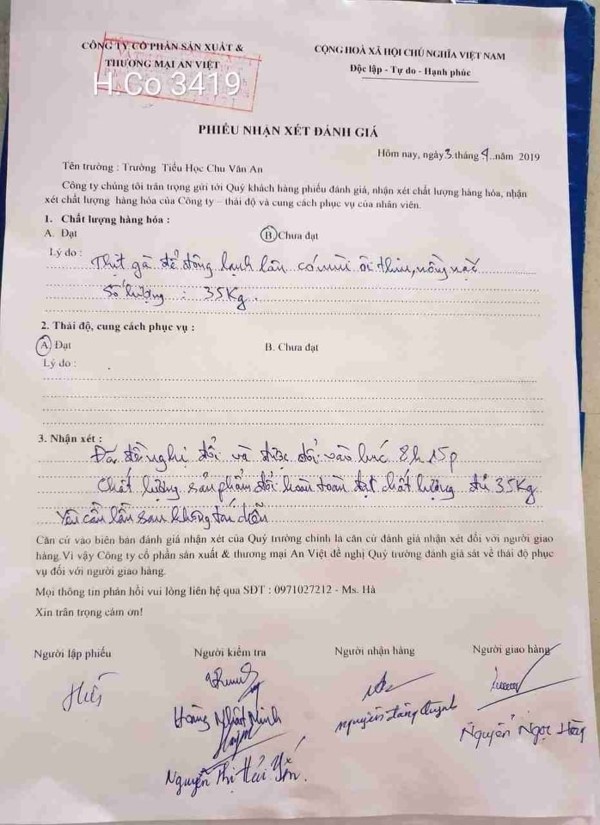 CÔNG TY CỔ PHẦN SẢN XUẤT &
THƯƠNG MẠI AN VIỆT
H.Co 3419
CỘNG HOÀ XÃ HỘI CHỦ NGHĨA VIỆT NAM
Độc lập - Tự do - Hạnh phúc
PHIẾU NHẬN XÉT ĐÁNH GIÁ
Hôm nay, ngày 3 tháng 4 năm 2019
Tên trường : Trường Tiểu Học Chu Văn An
Công ty chúng tôi trân trọng gửi tới Quý khách hàng phiếu đánh giá, nhận xét chất lượng hàng hóa, nhận
xét chất lượng hàng hóa của Công ty – thái độ và cung cách phục vụ của nhân viên.
1. Chất lượng hàng hóa :
A. Đạt B Chưa đạt
Lý do : Thịt gà để đông lạnh lâu có mùi ôi thiu, nồng nặc
Số lượng : 35Kg.
2. Thái độ, cung cách phục vụ :
A Đạt B. Chưa đạt
Lý do :
3. Nhận xét :
Đã đề nghị đổi và được đổi vào lúc 8h 15p
Chất lượng sản phẩm đổi hoàn toàn đạt chất lượng đủ 35Kg
Yêu cầu lần sau không tái diễn
Căn cứ vào biên bản đánh giá nhận xét của Quý trường chính là căn cứ đánh giá nhận xét đối với người giao
hàng.Vì vậy Công ty cổ phần sản xuất & thương mại An Việt đề nghị Quý trường đánh giá sát về thái độ phục
vụ đối với người giao hàng.
Mọi thông tin phản hồi vui lòng liên hệ qua SĐT : 0971027212 - Ms. Hà
Xin trân trọng cám ơn!
Người lập phiếu Người kiểm tra Người nhận hàng Người giao hàng
Hoàng Nhật Minh
Nguyễn Ngọc
Nguyễn Thị Hải Yến.